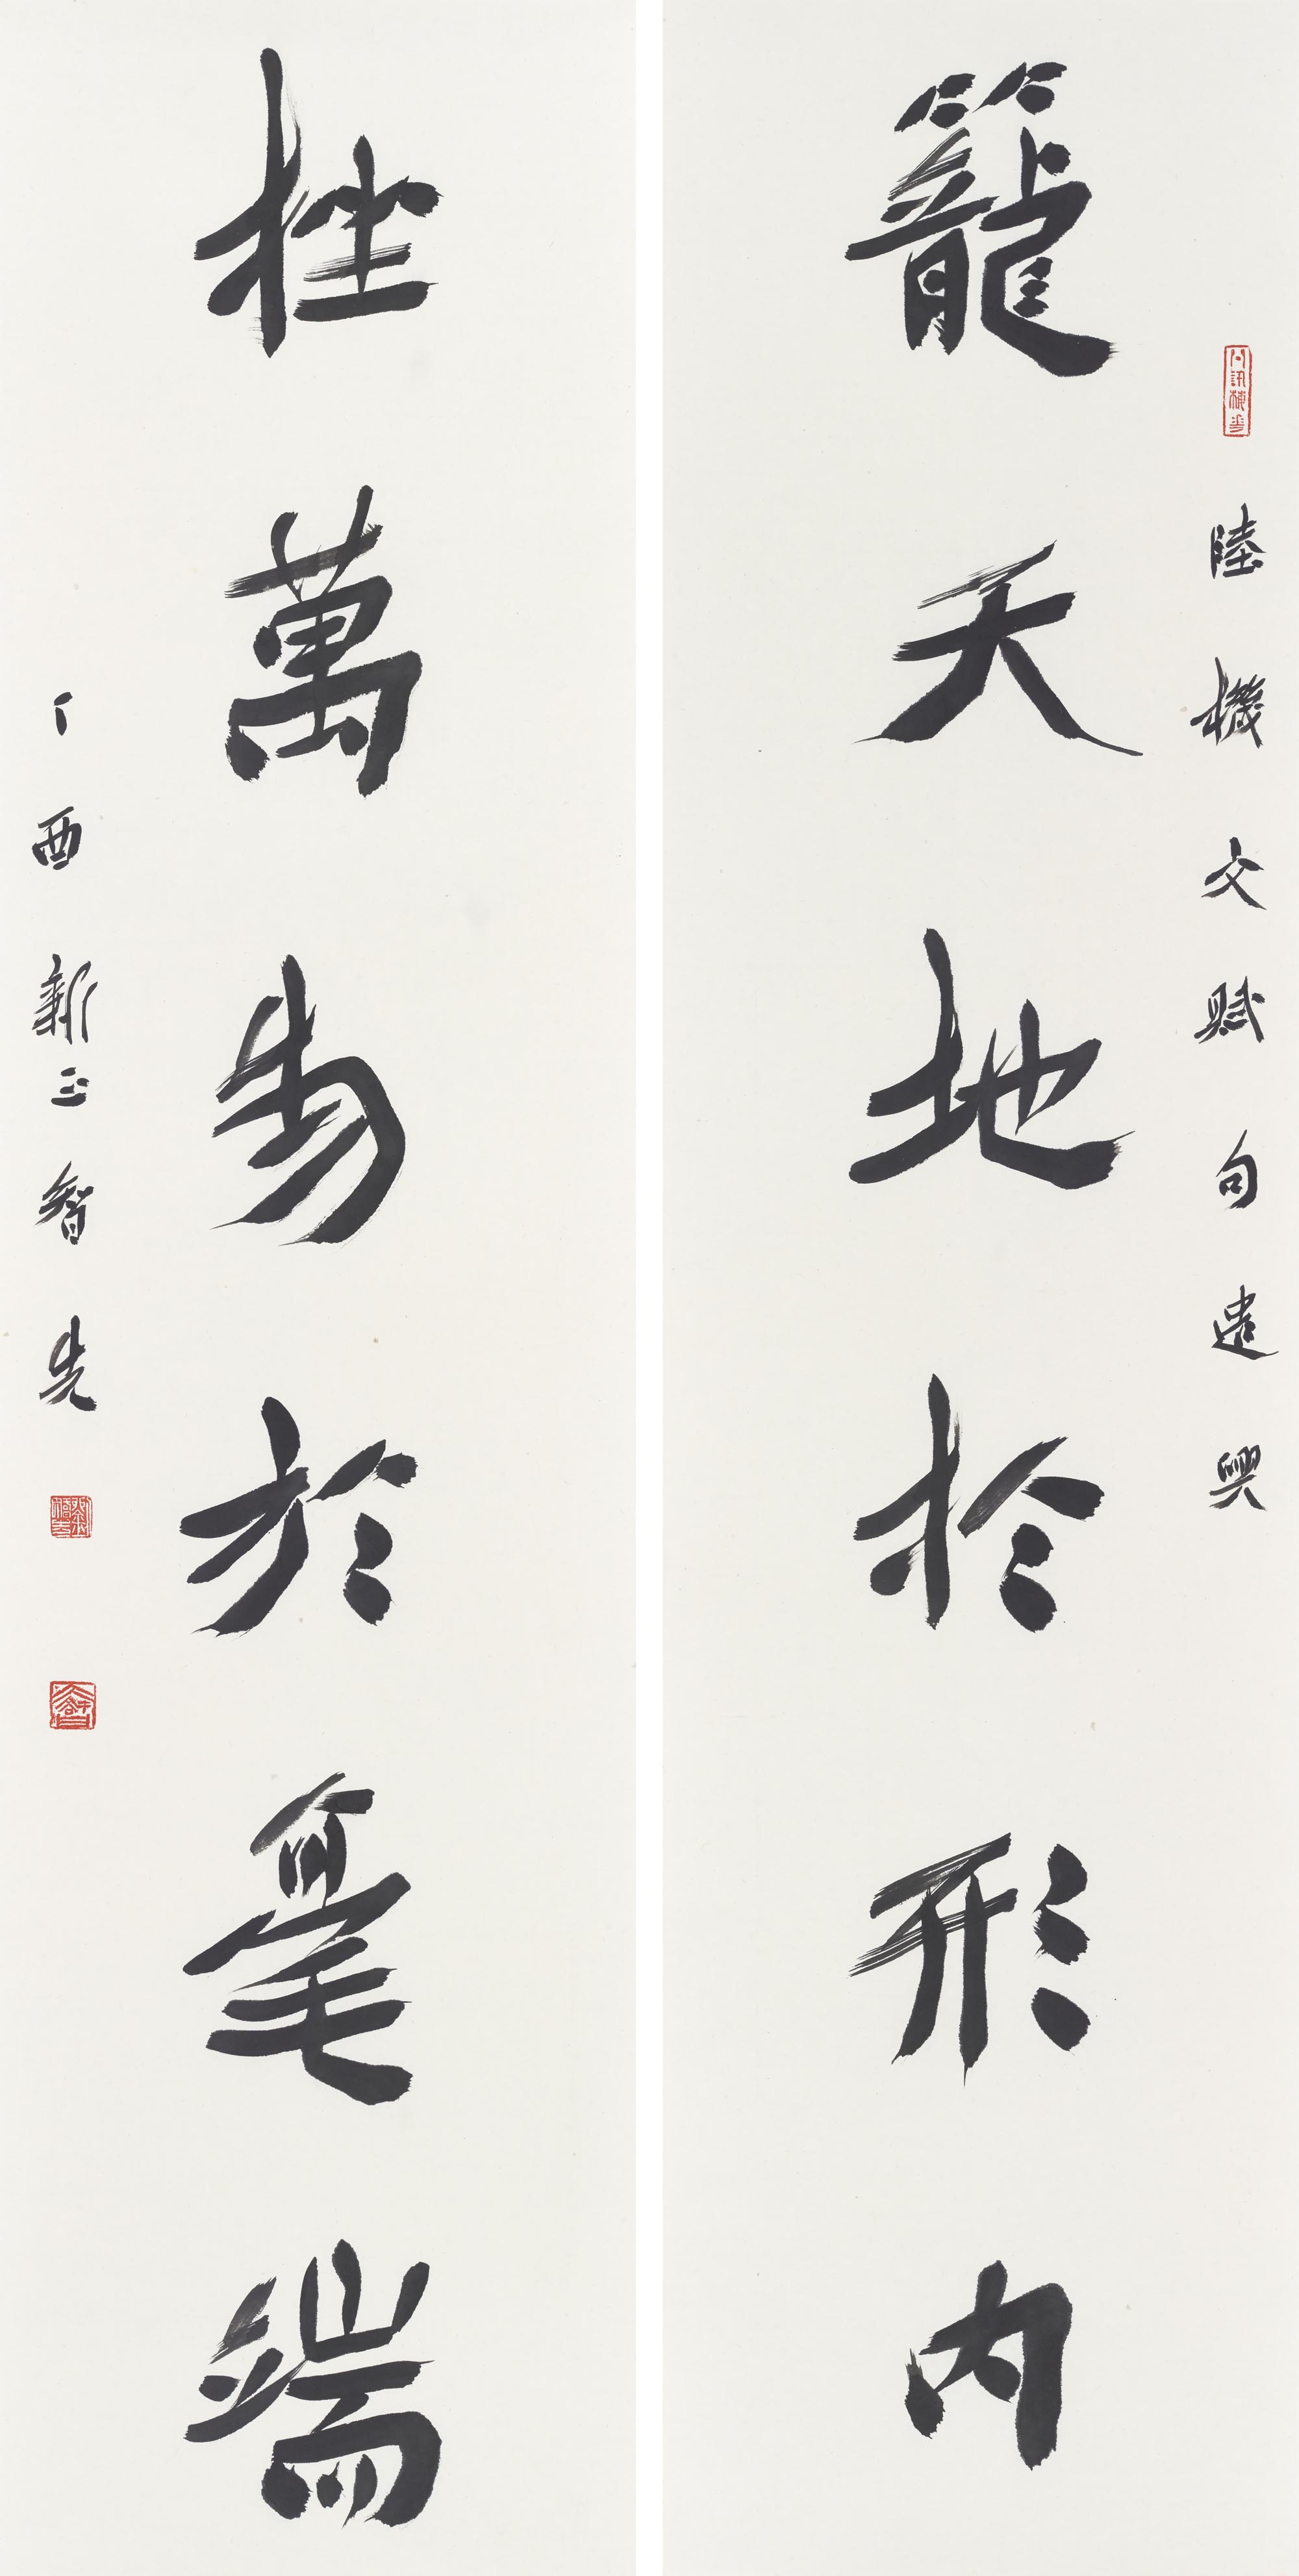 陸機文賦句遣興
籠天地於形內
挫萬物於毫端
丁酉新正智先